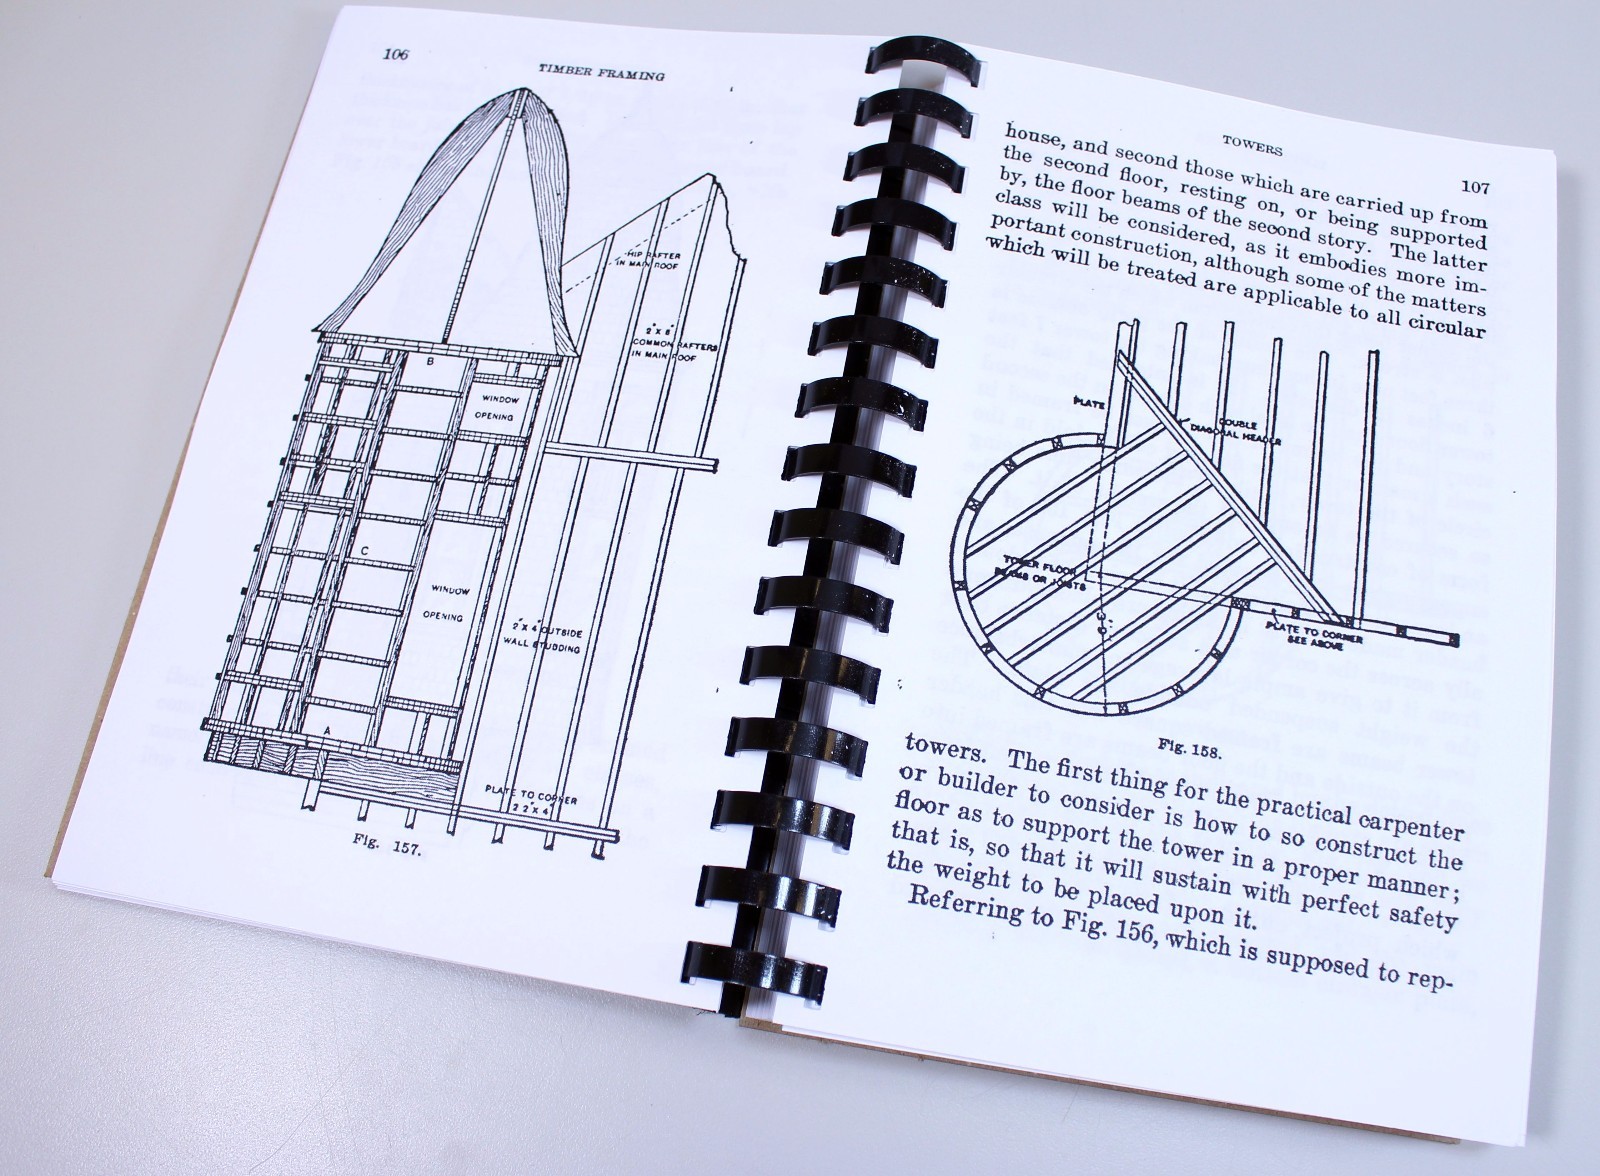 106
TIMBER FRAMING
HIP RAFTER
IN MAIN ROOF
2" X 8"
COMMON RAFTERS
IN MAIN ROOF
B
WINDOW
OPENING
C
WINDOW
OPENING
2" X 4" OUTSIDE
WALL STUDDING
A
PLATE TO CORNER
2 2" X 4"
Fig. 157.
TOWERS
107
house, and second those which are carried up from
the second floor, resting on, or being supported
by, the floor beams of the second story. The latter
class will be considered, as it embodies more im-
portant construction, although some of the matters
which will be treated are applicable to all circular
PLATE
DOUBLE
DIAGONAL HEADER
TOWER FLOOR
BEAMS OR JOISTS
PLATE TO CORNER
SEE ABOVE
Fig. 158.
towers. The first thing for the practical carpenter
or builder to consider is how to so construct the
floor as to support the tower in a proper manner;
that is, so that it will sustain with perfect safety
the weight to be placed upon it.
Referring to Fig. 156, which is supposed to rep-